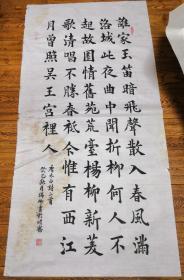 誰家玉笛暗飛聲散入春風滿
洛城此夜曲中聞折柳何人不
起故園情舊苑荒臺楊柳新菱
歌清唱不勝春祗今惟有西江
月曾照吳王宮裡人
唐李白詩二首